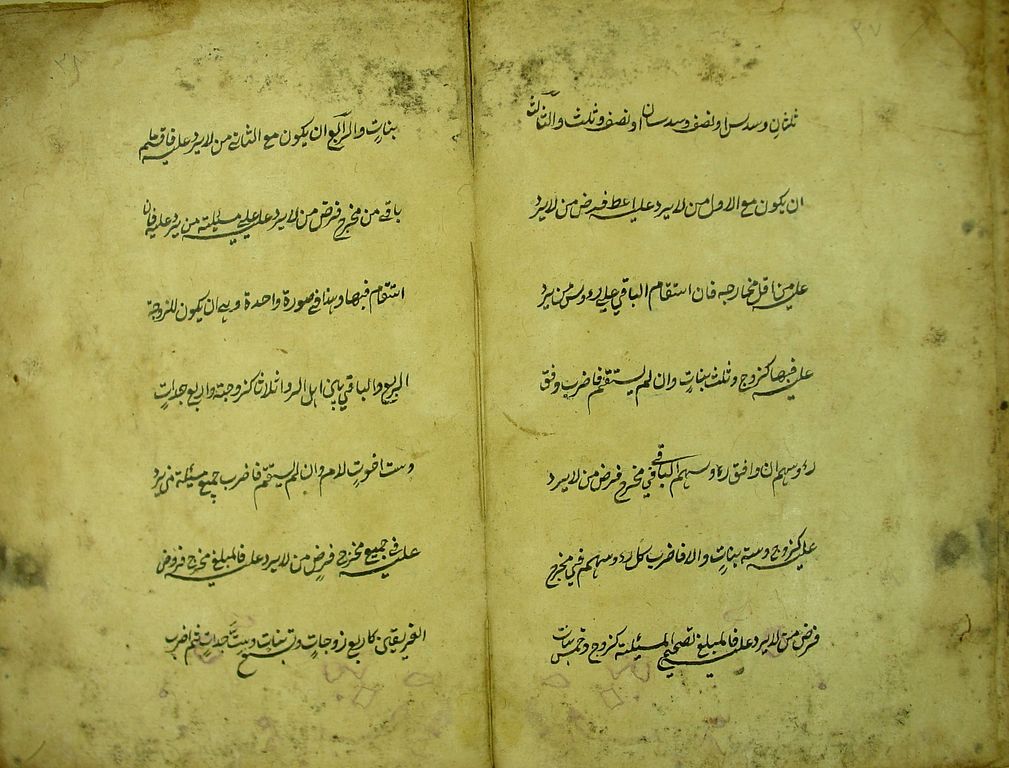 ٢٧
ثلثان وسدس او نصف وسدسان او نصف وثلث والثالث
ان يكون مع الاول من لا يرد عليه اعط فرض من لا يرد
عليه من اقل مخارجه فان استقام الباقي على رءوس من يرد
عليه فبها كزوج وثلث بنات وان لم يستقم فاضرب وفق
رءوسهم ان وافق رءوسهم الباقي في مخرج فرض من لا يرد
عليه كزوج وستة بنات والا فاضرب كل رءوسهم في مخرج
فرض من لا يرد عليه فالمبلغ تصحيح المسئلة كزوج وخمس بنات
٢٨
بنات والرابع ان يكون مع الثاني من لا يرد عليه فاقسم
باقي من مخرج فرض من لا يرد عليه على مسئلة من يرد عليه فان
استقام فبها وهذا في صورة واحدة وهي ان يكون للزوجة
الربع والباقي بين اهل الرد اثلاثا كزوجة واربع جدات
وست اخوت لام وان لم يستقم فاضرب جميع مسئلة من يرد
عليه في جميع مخرج فرض من لا يرد عليه فالمبلغ مخرج فروض
الفريقين كاربع زوجات وتسع بنات وست جدات ثم اضرب